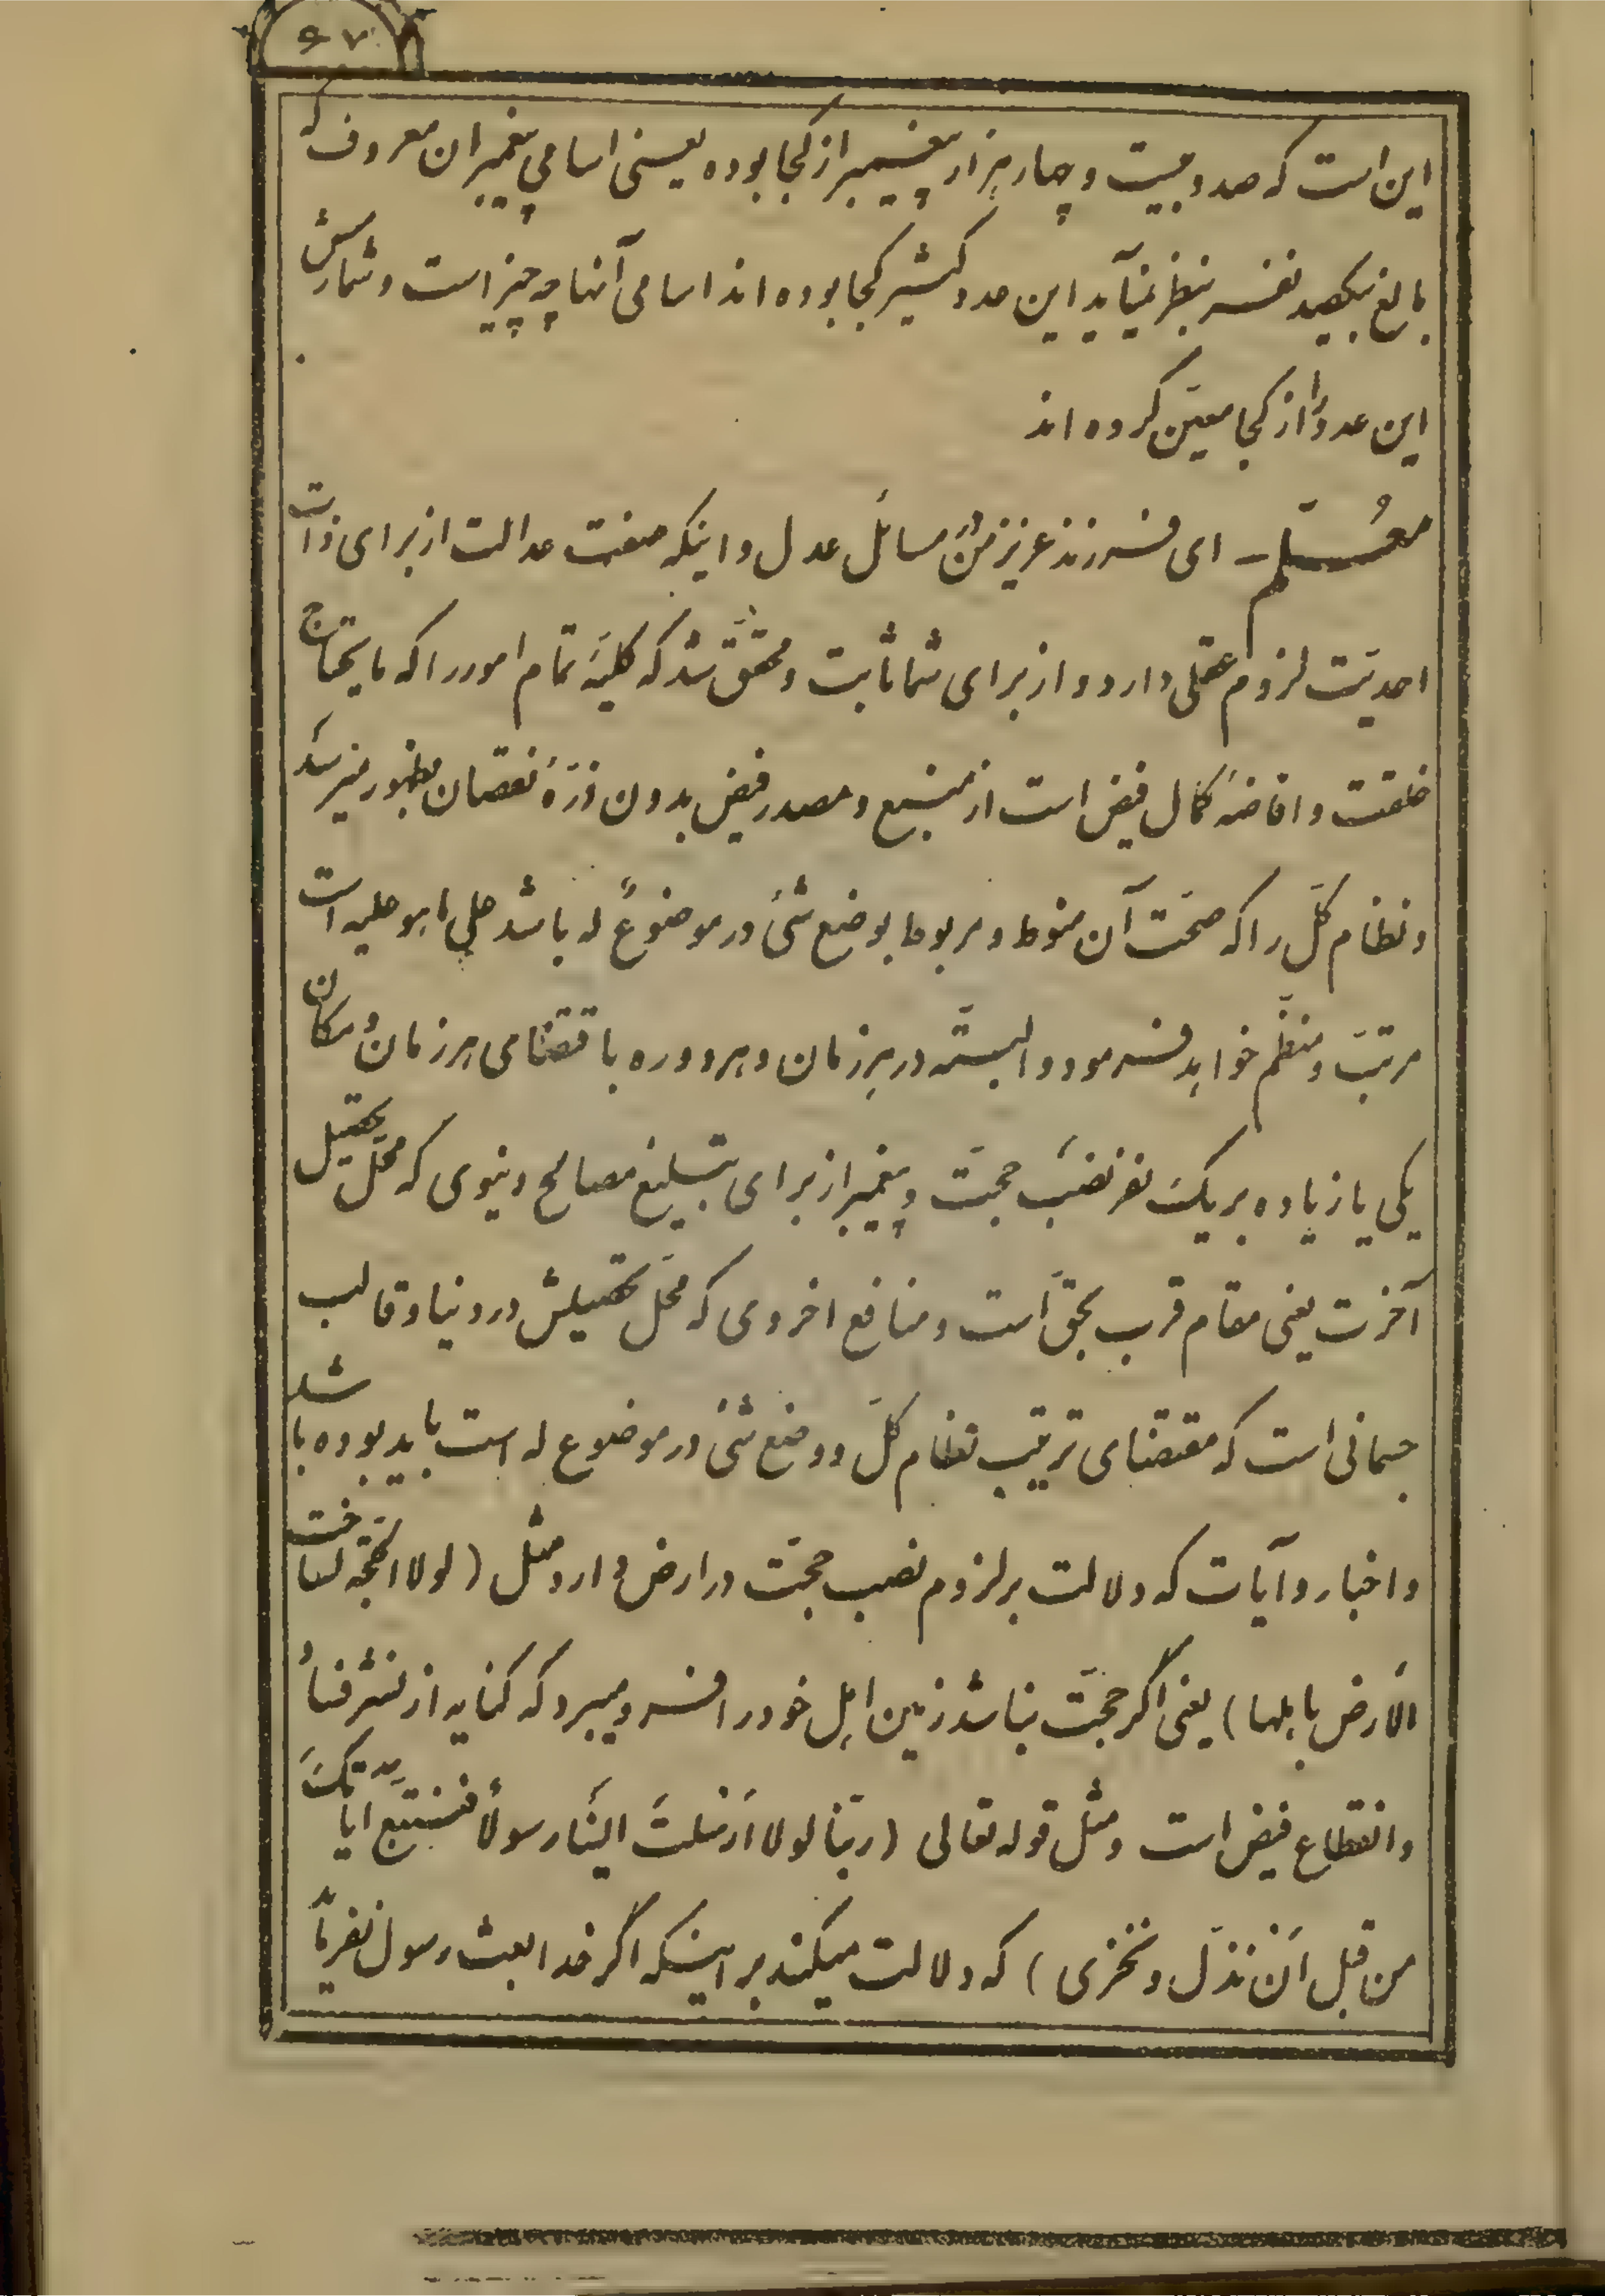 ۶۷
این است که صد و بیست و چهار هزار پیغمبر از کجا بوده یعنی اسامی پیغمبران معروف که
بالغ بیکصد نفر بنظر نمیآید این عدد کثیر کجا بوده اند اسامی آنها چه چیز است و شمارش
این عدد را از کجا معین کرده اند
معلّم – ای فرزند عزیز من در مسائل عدل و اینکه صفت عدالت از برای ذات
احدیّت لزوم عقلی دارد و از برای شما ثابت و محقّق شد که کلیّه تمام امور را که مایحتاج
خلقت و افاضهٔ کمال فیض است از منبع و مصدر فیض بدون ذرّهٔ نقصان بظهور میرسد
و نظام کلّ را که صحّت آن منوط و مربوط بوضع شئ در موضوعٌ له باشد علی ما هو علیه است
مرتبّ و منظّم خواهد فرمود و البتّه در هر زمان و هر دوره باقتضای هر زمان و مکان
یکی یا زیاده بر یک نفر نصب حجّت و پیغمبر از برای تبلیغ مصالح دنیوی که محلّ تحصیل
آخرت یعنی مقام قرب بحقّ است و منافع اخروی که محلّ تحصیلش در دنیا و قالب
جسمانی است که مقتضای ترتیب نظام کلّ و وضع شئ در موضوع له است باید بوده باشد
و اخبار و آیات که دلالت بر لزوم نصب حجّت در ارض دارد مثل (لولا الحجّه لساخت
الأرض باهلها) یعنی اگر حجّت نباشد زمین اهل خود را فرو میبرد که کنایه از نشر فناء
و انقطاع فیض است و مثل قوله تعالی (ربّنا لولا اَرْسلتَ الینَا رسولاً فنتبع ایاتکَ
من قبل اَنْ نذلّ و نخزی) که دلالت میکند بر اینکه اگر خدا بعث رسول نفرماید